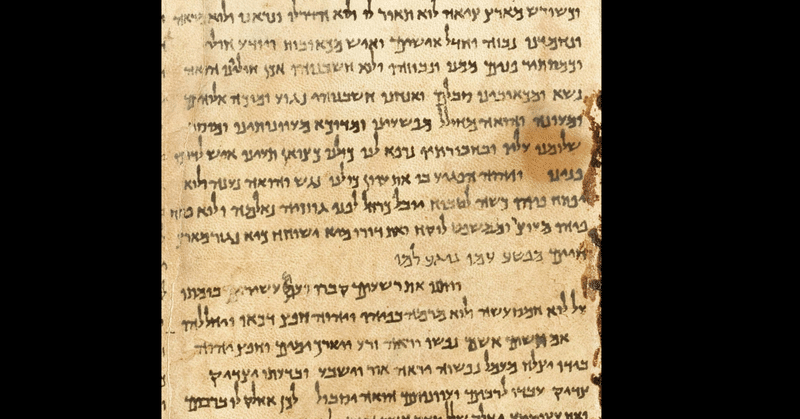 וכשורש מארץ ציאה לוא תואר לו ולוא הדר לו ונראנו ולוא מראה
ונחמדנו נבזה וחדל אישים ואיש מכאובות ויודע חולי
וכמסתיר פנים ממנו ונבוזהו ולוא חשבנוהו אכן חוליינו הואה
נשא ומכאובינו סבלם ואנחנו חשבנוהו נגוע ומוכה אלוהים
ומעונה והואה מחולל מפשעינו ומדוכא מעוונותינו ומוסר
שלומנו עליו ובחבורתיו נרפא לנו כולנו כצואן תעינו איש לדרכו
פנינו ויהוה הפגיע בו את עוון כולנו נגש והואה נענה ולוא
יפתח פיהו כשה לטבוח יובל כרחל לפני גוזזיה נאלמה ולוא פתח
פיהו מעוצר וממשפט לוקח ואת דורו מיא ישוחח כיא נגזר מארץ
חיים מפשע עמו נוגע למו
ויתנו את רשעים קברו ועם עשיר בומתו
על לוא חמס עשה ולוא מרמה בפיהו ויהוה חפץ דכאו ויחללהו
אם תשים אשם נפשו יראה זרע ויארך ימים וחפץ יהוה
בידו יצלח מעמל נפשוה יראה אור וישבע ובדעתו יצדיק
צדיק עבדו לרבים ועוונותם הואה יסבול לכן אחלק לו ברבים